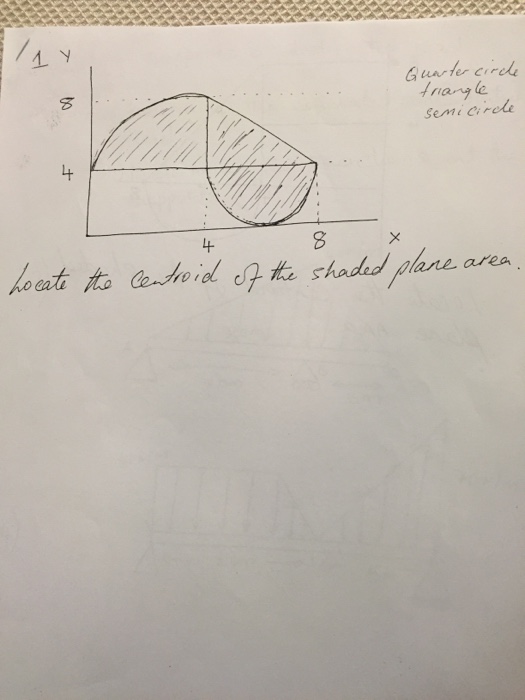 1 Y
Quarter circle
triangle
semicircle
8
4
4 8 X
Locate the centroid of the shaded plane area.